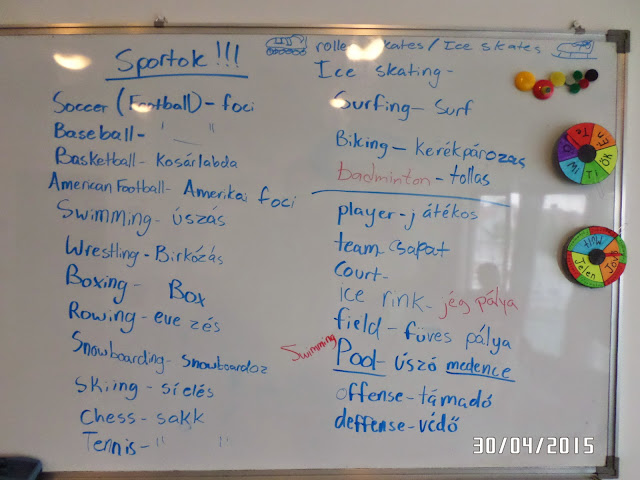 Sportok!!!
Soccer (Football) - foci
Baseball - " "
Basketball - Kosárlabda
American Football - Amerikai foci
Swimming - úszás
Wrestling - Birkózás
Boxing - Box
Rowing - evezés
Snowboarding - snowboardoz
Skiing - síelés
Chess - sakk
Tennis - " "
roller skates / Ice skates
Ice skating -
Surfing - Surf
Biking - kerékpározas
badminton - tollas
player - játékos
team - csapat
Court -
ICE rink - jég pálya
field - füves pálya
Swimming Pool - úszó medence
offense - támadó
deffense - védő
Te
Én
Ők
Ti
Mi
Ő
Múlt
Jelen
30/04/2015